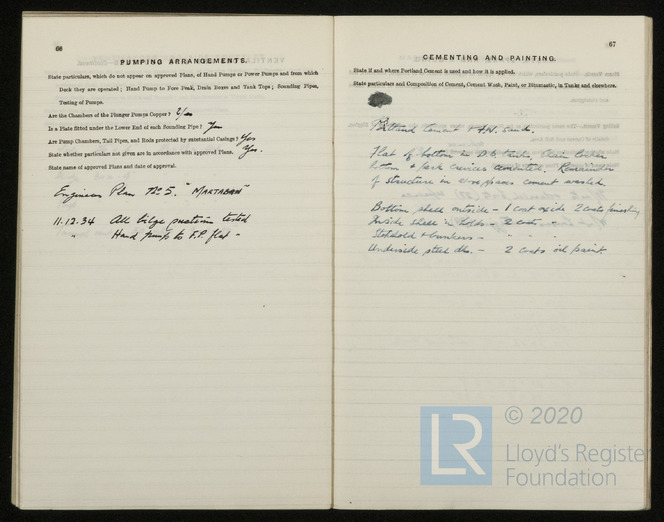 66
PUMPING ARRANGEMENTS.
State particulars, which do not appear on approved Plans, of Hand Pumps or Power Pumps and from which
Deck they are operated; Hand Pump to Fore Peak, Drain Boxes and Tank Tops; Sounding Pipes,
Testing of Pumps.
Are the Chambers of the Plunger Pumps Copper? Yes
Is a Plate fitted under the Lower End of each Sounding Pipe? Yes
Are Pump Chambers, Tail Pipes, and Rods protected by substantial Casings? Yes
State whether particulars not given are in accordance with approved Plans. Yes.
State name of approved Plans and date of approval.
Engineer Plan No 5. "MARTABAN"
11.12.34 All bilge suctions tested
" Hand pump to F.P. flat "
67
CEMENTING AND PAINTING.
State if and where Portland Cement is used and how it is applied.
State particulars and Composition of Cement, Cement Wash, Paint, or Bitumastic, in Tanks and elsewhere.
Portland Cement & sand.
Flat of bottom in D.B. tanks, chain locker
& Peak crevices cemented. Remainder
of structure in cement washed.
Bottom shell outside - 1 coat oxide 2 coats
Inside shell in holds - 2 coats "
Stokehold & bunkers - " "
Underside steel dks. - 2 coats oil paint.
LR
© 2020
Lloyd's Register
Foundation